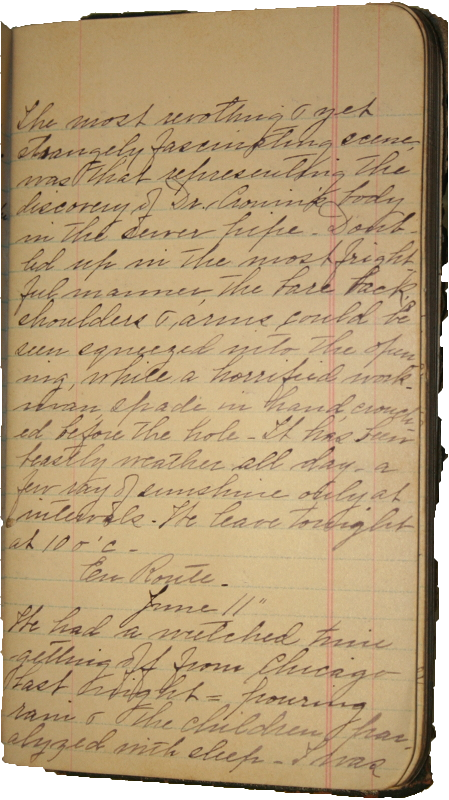 The most revolting & yet
strangely fascinating scene,
was that representing the
discovery of Dr. Cronin's body
in the sewer pipe - Doubl-
ed up in the most fright
ful manner the bare back,
shoulders & arms could be
seen squeezed into the open-
ing, while a horrified work-
man spade in hand, crouch-
ed before the hole - It has been
beastly weather all day - a
few ray of sunshine only at
intervals. We leave tonight
at 10 o'c -
En Route.
June 11"
We had a wretched time
getting off from Chicago
last night = pouring
rain & the children par-
alyzed with sleep - I was